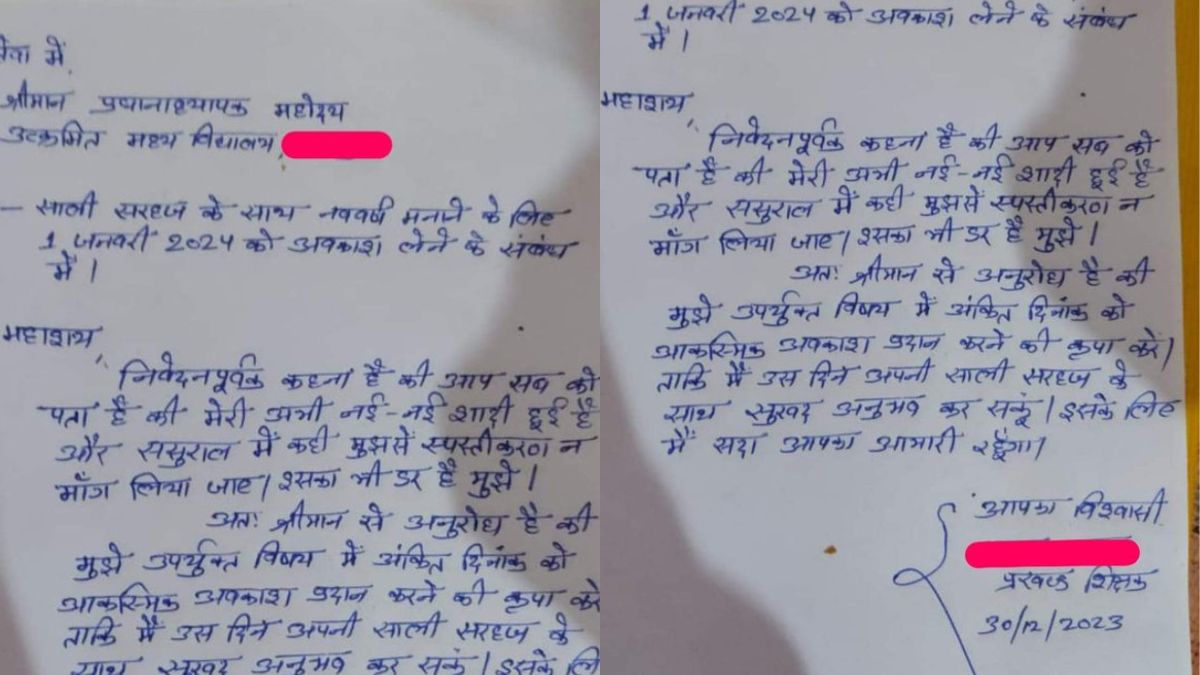 सेवा में,
श्रीमान प्रधानाध्यापक महोदय
उत्क्रमित मध्य विद्यालय,
— साली सरहज के साथ नववर्ष मनाने के लिए
1 जनवरी 2024 को अवकाश लेने के संबंध
में।
महाशय,
निवेदनपूर्वक कहना है की आप सब को
पता है की मेरी अभी नई-नई शादी हुई है
और ससुराल में कही मुझसें स्पस्तीकरण न
माँग लिया जाए। इसका भी डर है मुझे।
अतः श्रीमान से अनुरोध है की
मुझे उपर्युक्त विषय में अंकित दिनांक को
आकस्मिक अवकाश प्रदान करने की कृपा करे
ताकि मैं उस दिन अपनी साली सरहज के
साथ सुखद अनुभव कर सकूं। इसके लि
1 जनवरी 2024 को अवकाश लेने के संबंध
में।
महाशय,
निवेदनपूर्वक कहना है की आप सब को
पता है की मेरी अभी नई-नई शादी हुई है
और ससुराल में कही मुझसें स्पस्तीकरण न
माँग लिया जाए। इसका भी डर है मुझे।
अतः श्रीमान से अनुरोध है की
मुझे उपर्युक्त विषय में अंकित दिनांक को
आकस्मिक अवकाश प्रदान करने की कृपा करें।
ताकि मैं उस दिन अपनी साली सरहज के
साथ सुखद अनुभव कर सकूं। इसके लिए
मैं सदा आपका आभारी रहूँगा।
आपका विश्वासी
प्रखण्ड शिक्षक
30/12/2023